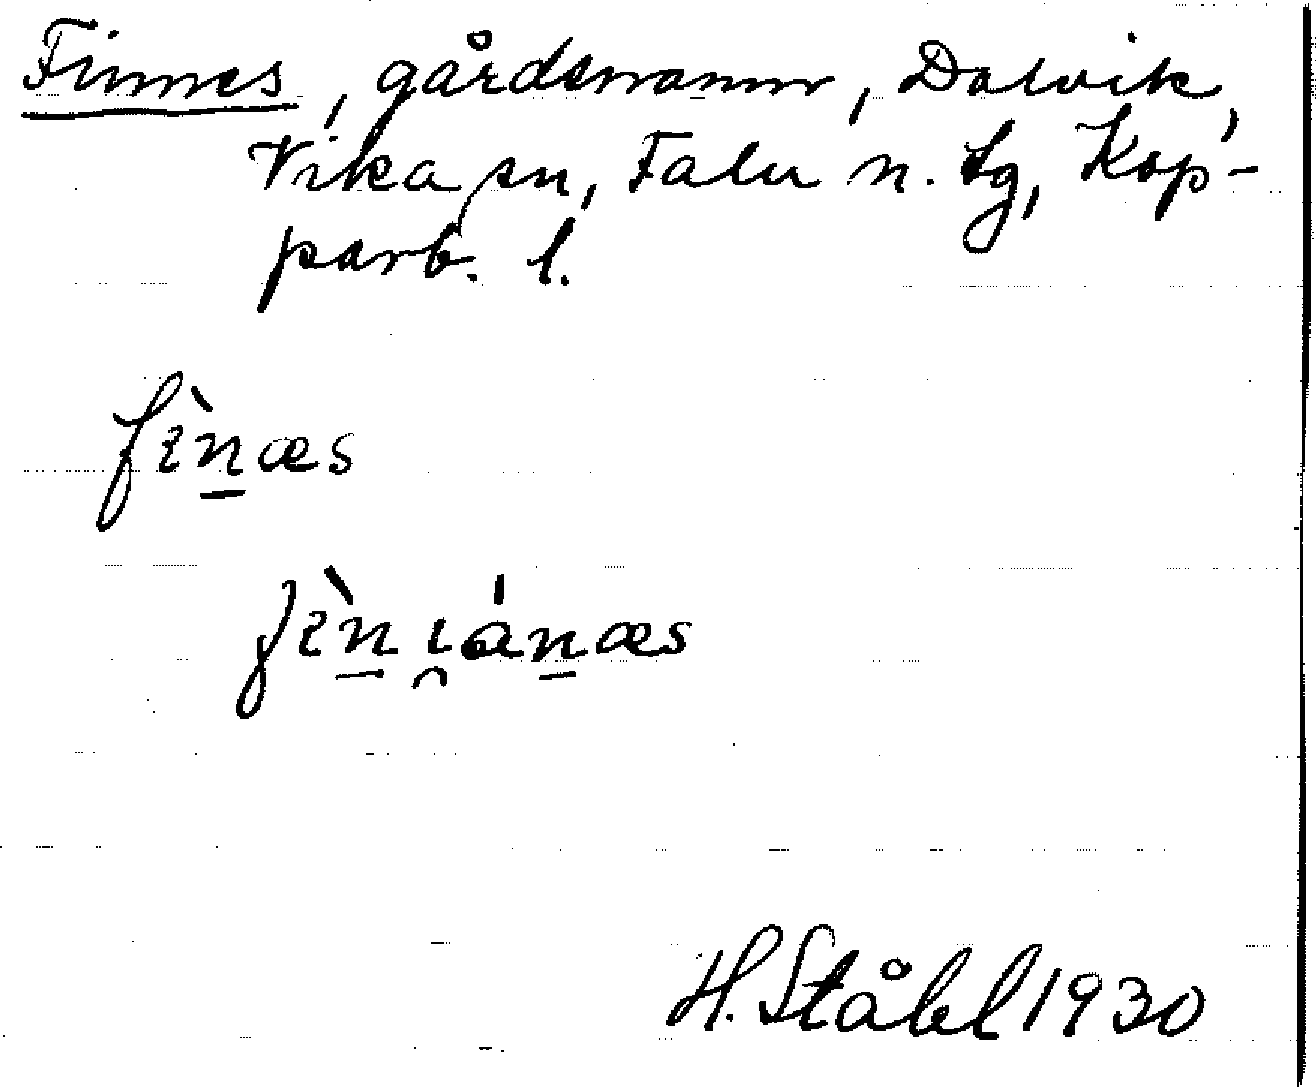 Finnes, gårdsnamn, Dalvik,
Vika sn, Falu n. tg, Kop-
parb. l.
fìn̲æs
fìn̲ i̯án̲æs
H. Ståhl 1930